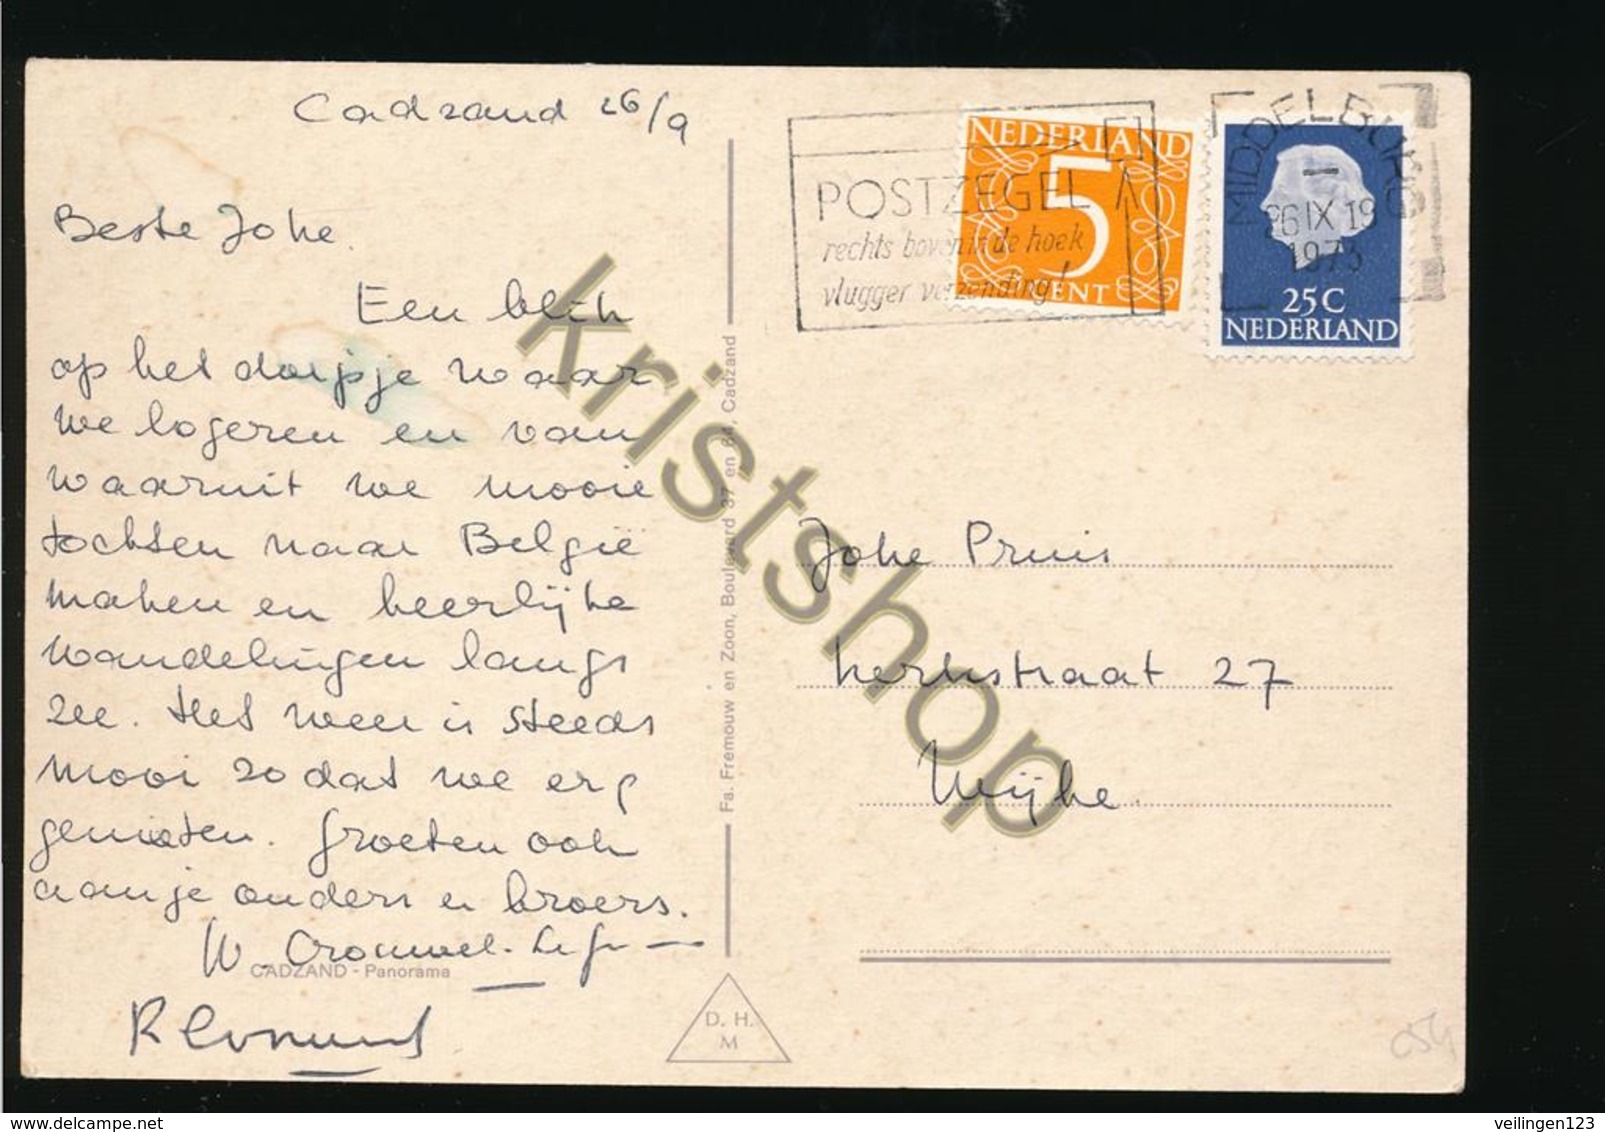 Cadzand 26/9
Beste Joke.
Een blik
op het dorpje waar
we logeren en van
waaruit we mooie
tochten naar België
maken en heerlijke
wandelingen langs
zee. Het weer is steeds
mooi zodat we erg
genieten. Groeten ook
aan je ouders en broers.
W. Crommel-
CADZAND - Panorama
Fa. Fremouw en Zoon, Boulevard 37 en 64, Cadzand
D. H.
M
POSTZEGEL
rechts boven in de hoek
vlugger verzending!
NEDERLAND
5
CENT
MIDDELBURG
26 IX 19
1973
25 C
NEDERLAND
Joke Pruis
Kerkstraat 27
Wijhe.
kristshop
054
veilingen123
www.delcampe.net